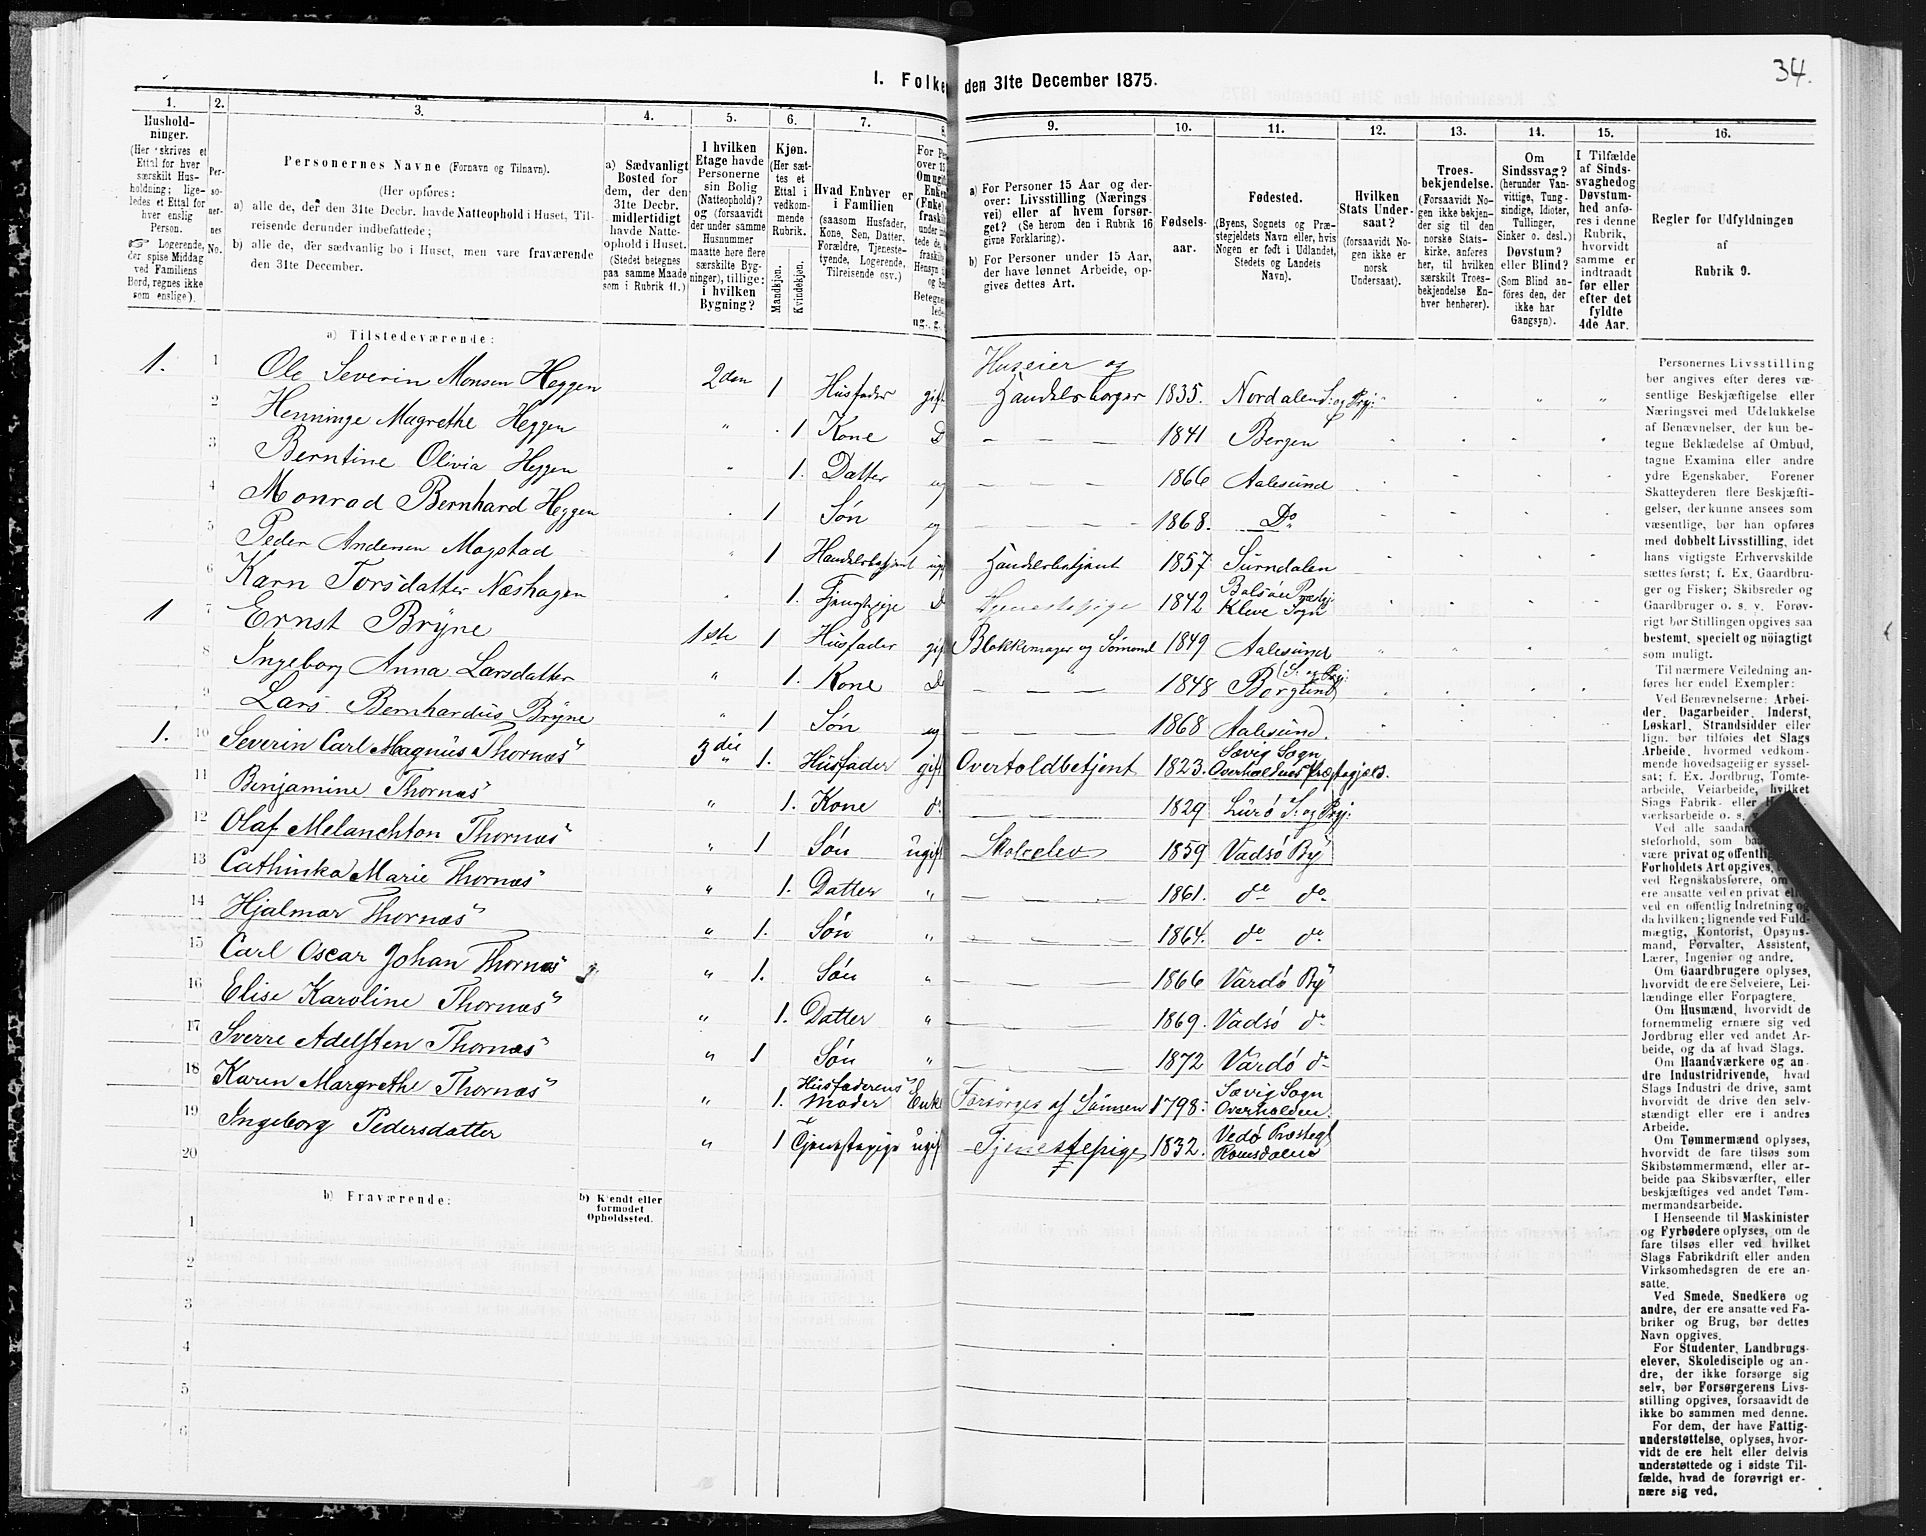 34.
1. Folke den 31te December 1875.
1. 2. 3. 4. 5. 6. 7. 8. 9. 10. 11. 12. 13. 14. 15. 16.
Hushold-
ninger.
(Her skrives et
Ettal for hver
særskilt Hus-
holdning; lige-
ledes et Ettal for
hver enslig
Person.
☞ Logerende,
der spise Middag
ved Familiens
Bord, regnes ikke
som enslige).
Per-
so-
ner-
nes
No.
Personernes Navne (Fornavn og Tilnavn).
(Her opføres:
a) alle de, der den 31te Decbr. havde Natteophold i Huset, Til-
reisende derunder indbefattede;
b) alle de, der sædvanlig bo i Huset, men vare fraværende
den 31te December.
a) Sædvanligt
Bosted for
dem, der den
31te Decbr.
midlertidigt
havde Natte-
ophold i Huset.
(Stedet betegnes
paa samme Maade
som i Rubrik 11.)
I hvilken
Etage havde
Personerne
sin Bolig
(Natteophold)?
og (forsaavidt
der under samme
Husnummer
maatte høre flere
særskilte Byg-
ninger), tillige:
i hvilken
Bygning?
Kjøn.
(Her sæt-
tes et
Ettal i
vedkom-
mende
Rubrik.
Mandkjøn.
Kvindekjøn.
Hvad Enhver er
i Familien
(saasom Husfader,
Kone, Søn, Datter,
Forældre, Tjeneste-
tyende, Logerende,
Tilreisende osv.)
a) For Personer 15 Aar og der-
over: Livsstilling (Nærings
vei) eller af hvem forsør-
get? (Se herom den i Rubrik 16
givne Forklaring).
b) For Personer under 15 Aar,
der have lønnet Arbeide, op-
gives dettes Art.
Fødsels-
aar.
Fødested.
(Byens, Sognets og Præ-
stegjeldets Navn eller, hvis
Nogen er født i Udlandet,
Stedets og Landets
Navn).
Hvilken
Stats Under-
saat?
(forsaavidt No-
gen ikke er
norsk
Undersaat).
Troes-
bekjendelse.
(Forsaavidt No-
gen ikke bekjen-
der sig til den
norske Stats-
kirke, anføres
her, til hvilken
særskilt Troes-
bekjendelse En-
hver henhører).
Om
Sindssvag?
(herunder Van-
vittige, Tung-
sindige, Idioter,
Tullinger,
Sinker o. desl.)
Døvstum?
eller Blind?
(Som Blind an-
føres den, der
ikke har
Gangsyn).
I Tilfælde
af Sinds-
svaghed og
Døvstum-
hed anfø-
res i denne
Rubrik,
hvorvidt
samme er
indtraadt
før eller
efter det
fyldte
4de Aar.
Regler for Udfyldningen
af
Rubrik 9.
a) Tilstedeværende:
1. 1 Ole Severin Monsen Heggen 2den 1 Husfader gift Huseier og Handelsborger 1835. Nordalen S: og Prgj:
2 Henninge Magrethe Heggen " 1 Kone D — — — 1841 Bergen
3 Berntine Olivia Heggen " 1. Datter ug — — — 1866 Aalesund
4 Monrad Bernhard Heggen 1 Søn ug — — — 1868. Do
5 Peder Andersen Magstad " 1 Handelsbetjent ug Handelsbetjent 1857 Surndalen
6 Karn Torsdatter Næshagen 1. D 1842 Kleve Sogn
1 7 Ernst Bryne 1ste 1 Husfader gift Blokkemager og Sømand 1849 Aalesund
8 Ingeborg Anna Larsdatter " 1. Kone D 1848 Borgund (S: og Prgj:
9 Lars Bernhardus Bryne " 1 Søn ug — — — 1868 Aalesund.
1. 10 Severin Carl Magnus Thornæs" 3die " 1. Husfader gift Overtoldbetjent 1823. Sævig Sogn Overhaldnes Præstegjeld.
11 Benjamine Thornæs" " 1. Kone do — — — 1829 Lurø S: og Prgj:
12 Olaf Melanchton Thornæs" " 1 Søn ugift Skoleelev 1859 Vadsø By
13 Cathinka Marie Thornæs" " 1. Datter " — — — 1861. do do
14 Hjalmar Thornæs" " 1. Søn " — — — 1864. do do
15 Carl Oscar Johan Thornæs " 1. Søn " — — — 1866 Vardø By
16 Elise Karoline Thornæs" " 1. Datter " — — — 1869. Vadsø do
17 Sverre Adelsten Thornæs" " 1 Søn " — — — 1872 Vardø do
18 Karen Margrethe Thornæs" " 1. Husfaderens" Moder Enke Forsørges af Sønnen 1798. Sævig Sogn Overhalden.
19 Ingeborg Pedersdatter " 1 Tjenestepige ugift Tjenestepige 1832. Vedø Præstegj Romsdalen
20
b) Fraværende:
b) Kjendt eller
formodet
Opholdssted.
1
2
3
4
5
6
Personernes Livsstilling
bør angives efter deres væ-
sentlige Beskjæftigelse eller
Næringsvei med Udelukkelse
af Benævnelser, der kun be-
tegne Beklædelse af Ombud,
tagne Examina eller andre
ydre Egenskaber. Forener
Skatteyderen flere Beskjæfti-
gelser, der kunne ansees som
væsentlige, bør han opføres
med dobbelt Livsstilling, idet
hans vigtigste Erhvervskilde
sættes først; f. Ex. Gaardbru-
ger og Fisker; Skibsreder og
Gaardbruger o. s. v. Forøv-
rigt bør Stillingen opgives saa
bestemt, specielt og nöiagtigt
som muligt.
Til nærmere Veiledning an-
føres her endel Exempler:
Ved Benævnelserne: Arbei-
der, Dagarbeider, Inderst,
Løskarl, Strandsidder eller
lign. bør tilføies det Slags
Arbeide, hvormed vedkom-
mende hovedsagelig er syssel-
sat; f. Ex. Jordbrug, Tomte-
arbeide, Veiarbeide, hvilket
Slags Fabrik- eller
værksarbeide o. s. v.
Ved alle saadan
steforhold, som
være privat og offentlig
Forholdets Art opgives,
ved Regnskabsførere, om
ere ansatte ved en privat
ved en offentlig Indretning og
da hvilken; lignende ved Fuld-
mægtig, Kontorist, Opsyns-
mand, Forvalter, Assistent,
Lærer, Ingeniør og andre.
Om Gaardbrugere oplyses,
hvorvidt de ere Selveiere, Lei-
lændinge eller Forpagtere.
Om Husmænd, hvorvidt de
fornemmelig ernære sig ved
Jordbrug eller ved andet Ar-
beide, og da af hvad Slags.
Om Haandværkere og an-
dre Industridrivende, hvad
Slags Industri de drive, samt
hvorvidt de drive den selv-
stændigt eller ere i andres
Arbeide.
Om Tømmermænd oplyses,
hvorvidt de fare tilsøs som
Skibstømmermænd, eller ar-
beide paa Skibsværfter, eller
beskjæftiges ved andet Tøm-
mermandsarbeide.
I Henseende til Maskinister
og Fyrbødere oplyses, om de
fare tilsøs eller ved hvilket
Slags Fabrikdrift eller anden
Virksomhedsgren de ere an-
satte.
Ved Smede, Snedkere og
andre, der ere ansatte ved Fa-
briker og Brug, bør dettes
Navn opgives.
For Studenter, Landbrugs-
elever, Skoledisciple og an-
dre, der ikke forsørge sig
selv, bør Forsørgerens Livs-
stilling opgives, forsaavidt de
ikke bo sammen med denne.
For dem, der have Fattig-
understøttelse, oplyses, hvor-
vidt de ere helt eller delvis
understøttede og i sidste Til-
fælde, hvad de forøvrigt er-
nære sig ved.